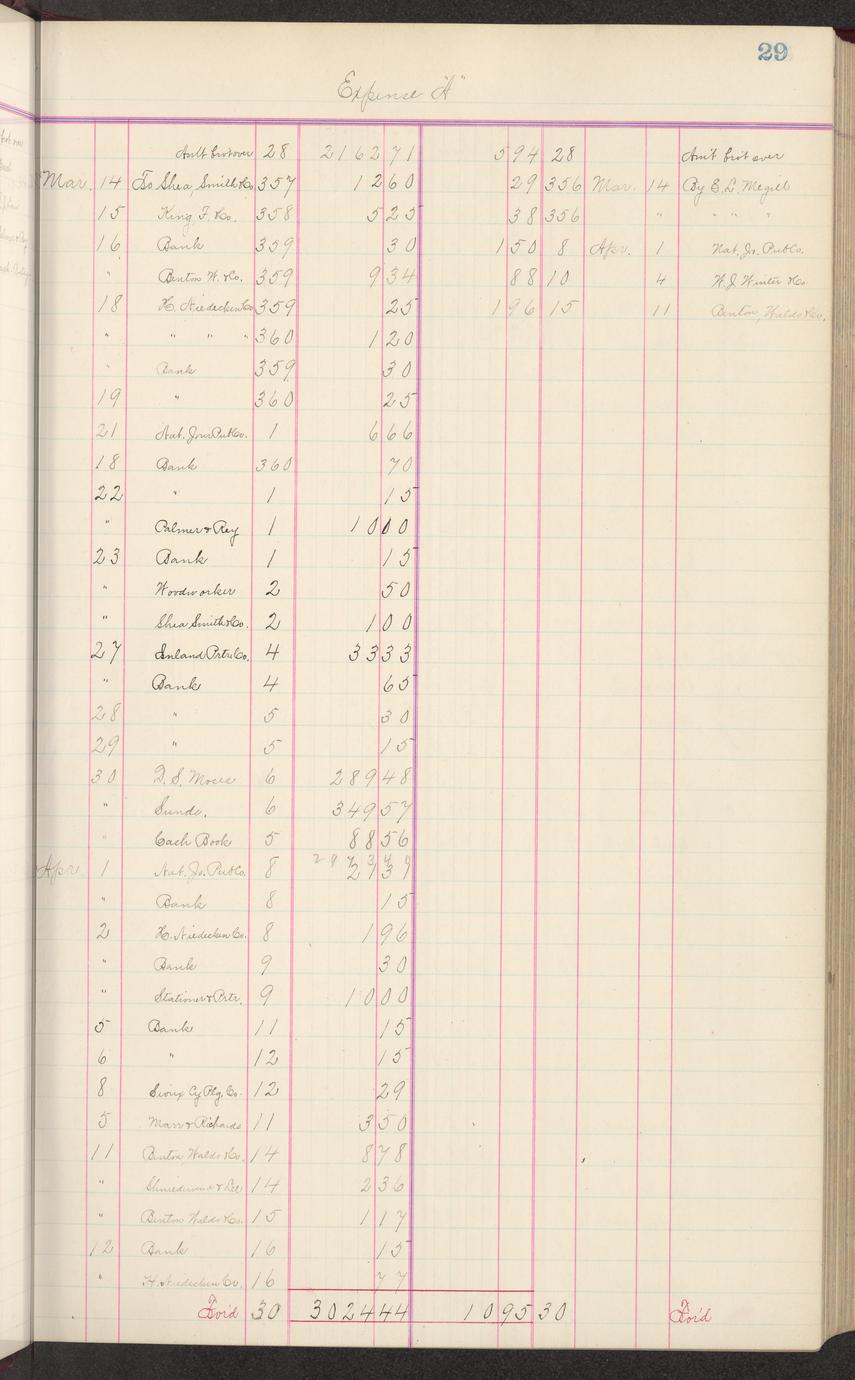 29
Expense "A"
Am't brot over 28 2162 71 594 28 Am't bro't over
Mar. 14 To Shea, Smith & Co 357 12 60 29 356 Mar. 14 By E. L. Megill
15 King F. & Co. 358 5 25 38 356 " " " "
16 Bank 359 30 150 8 Apr. 1 Nat. Jr. Pub Co.
" Benton W. & Co. 359 9 34 88 10 4 W. J. Winter & Co.
18 H. Niedecken Co 359 25 196 15 11 Benton, Waldo & Co.
" " " " 360 1 20
" Bank 359 30
19 " 360 25
21 Nat. Jour Pub Co. 1 6 66
18 Bank 360 70
22 " 1 15
" Palmer & Rey 1 10 00
23 Bank 1 15
" Woodworker 2 50
" Shea Smith & Co. 2 1 00
27 Inland Prtr Co. 4 33 33
" Bank 4 65
28 " 5 30
29 " 5 15
30 D. S. Moses 6 289 48
" Sunds. 6 349 57
" Cash Book 5 88 56
2973 49
Apr 1 Nat. Jr. Pub Co. 8 21 39
" Bank 8 15
2 H. Niedecken Co. 8 1 96
" Bank 9 30
" Stationer & Prtr. 9 10 00
5 Bank 11 15
6 " 12 15
8 Sioux Cy Ptg. Co. 12 29
5 Marr & Richards 11 3 50
11 Benton Waldo & Co. 14 8 78
" & Lee 14 2 36
" Benton Waldo & Co. 15 1 17
12 Bank 16 15
" H. Niedecken Co. 16 77
For'd 30 3024 44 1095 30 For'd